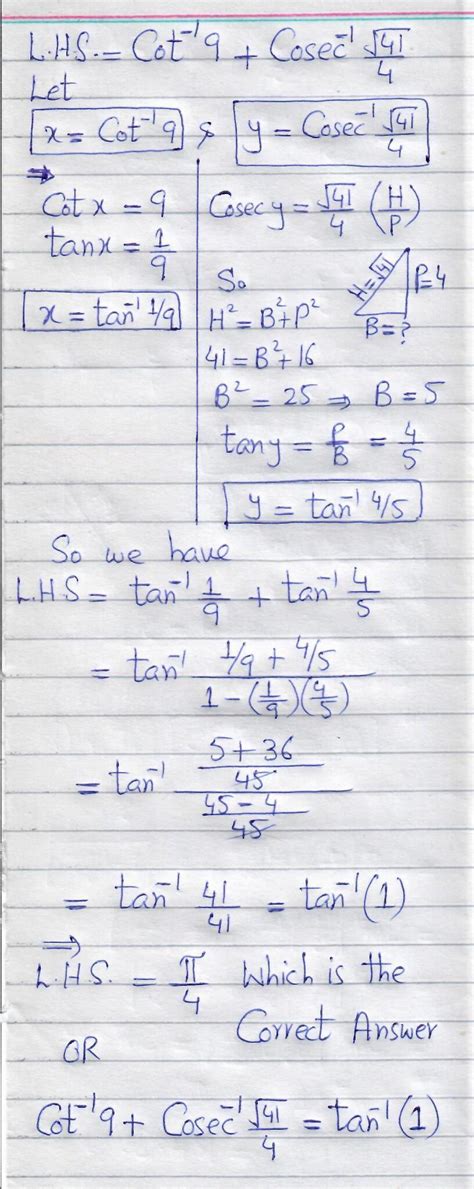 L.H.S. = Cot⁻¹ 9 + Cosec⁻¹ √41/4
Let
x = Cot⁻¹ 9 & y = Cosec⁻¹ √41/4
⇒
Cot x = 9
tan x = 1/9
x = tan⁻¹ 1/9
Cosec y = √41/4 (H/P)
So
H² = B² + P²
H = √41
P = 4
B = ?
41 = B² + 16
B² = 25 ⇒ B = 5
tan y = P/B = 4/5
y = tan⁻¹ 4/5
So we have
L.H.S = tan⁻¹ 1/9 + tan⁻¹ 4/5
= tan⁻¹ (1/9 + 4/5)/(1 - (1/9)(4/5))
= tan⁻¹ ((5 + 36)/45)/((45 - 4)/45)
= tan⁻¹ 41/41 = tan⁻¹ (1)
⇒
L.H.S. = π/4 Which is the
Correct Answer
OR
Cot⁻¹ 9 + Cosec⁻¹ √41/4 = tan⁻¹ (1)